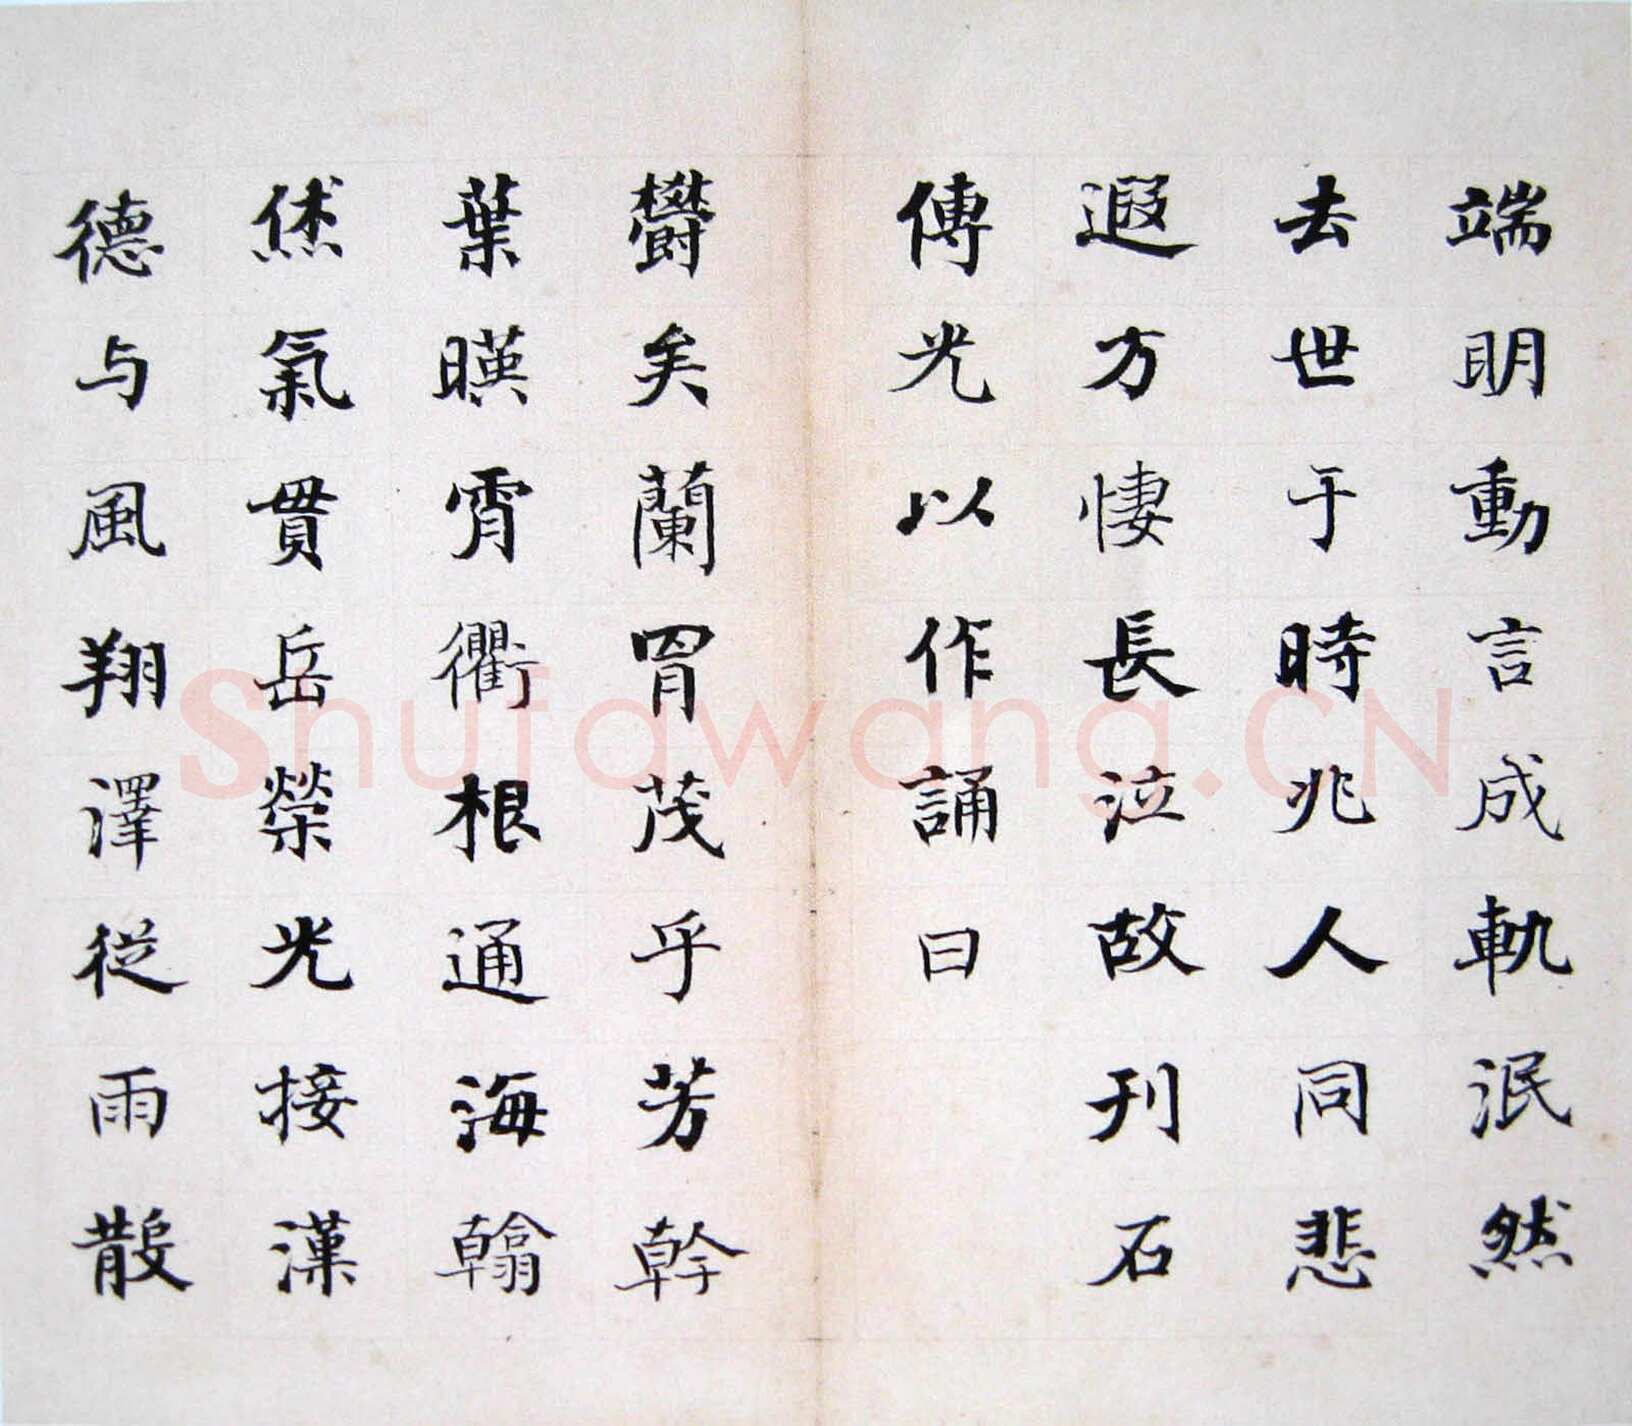 端明動言成軌泯然
去世于時兆人同悲
遐方悽長泣故刊石
傳光以作誦曰
欝矣蘭胄茂乎芳幹
葉暎霄衢根通海翰
烋氣貫岳榮光接漢
德与風翔澤從雨散
Shufawang.CN